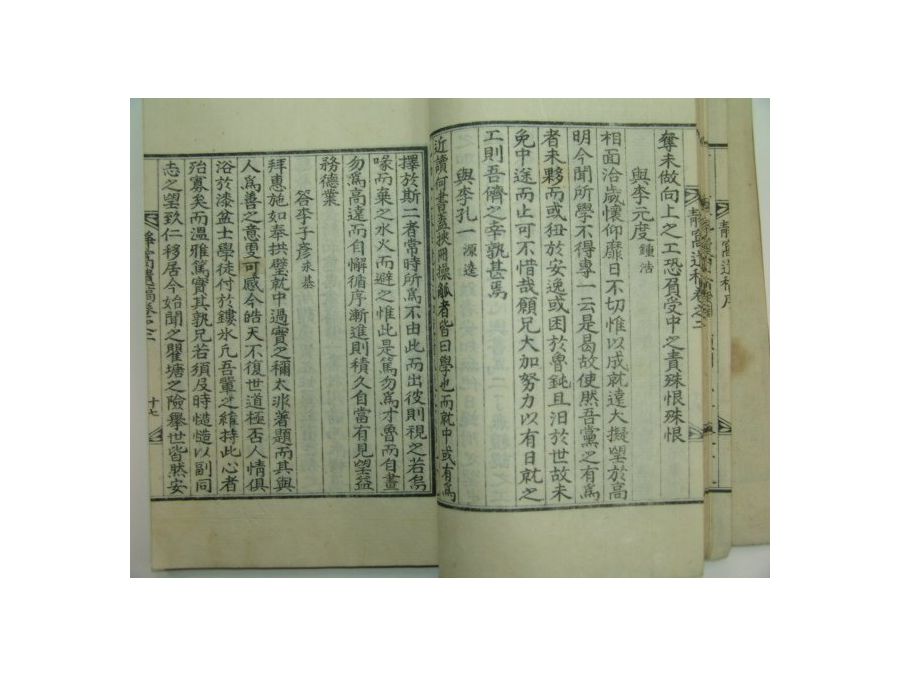 靜窩遺稿卷之二
奪未做向上之工恐孤受中之責殊恨殊恨
與李元度鍾浩
相面洽歲懷仰靡日不切惟以成就遠大擬望於高
明今聞所學不得專一云是曷故使然吾黨之有爲
者未夥而或狃於安逸或困於魯鈍且汨於世故未
免中途而止可不惜哉願兄大加努力以有日就之
工則吾儕之幸孰甚焉
與李孔一源遠
近讀何書盖挾冊操觚者皆曰學也而就中或有爲
擇於斯二者常時所爲不由此而出彼則視之若烏
喙而棄之水火而避之惟此是篤勿爲才魯而自畫
勿爲高達而自懈循序漸進則積久自當有見望益
務德業
答李子彦永基
拜惠施如奉拱璧就中過實之稱太非著題而其與
人爲善之意更可感今皓天不復世道極否人情俱
浴於漆盆士學徒付於鏤氷凡吾輩之維持此心者
殆寡矣而溫雅篤實其孰兄若須及時慥慥以副同
志之望致仁移居今始聞之瞿塘之險擧世皆然安
靜窩遺稿卷之二
十七